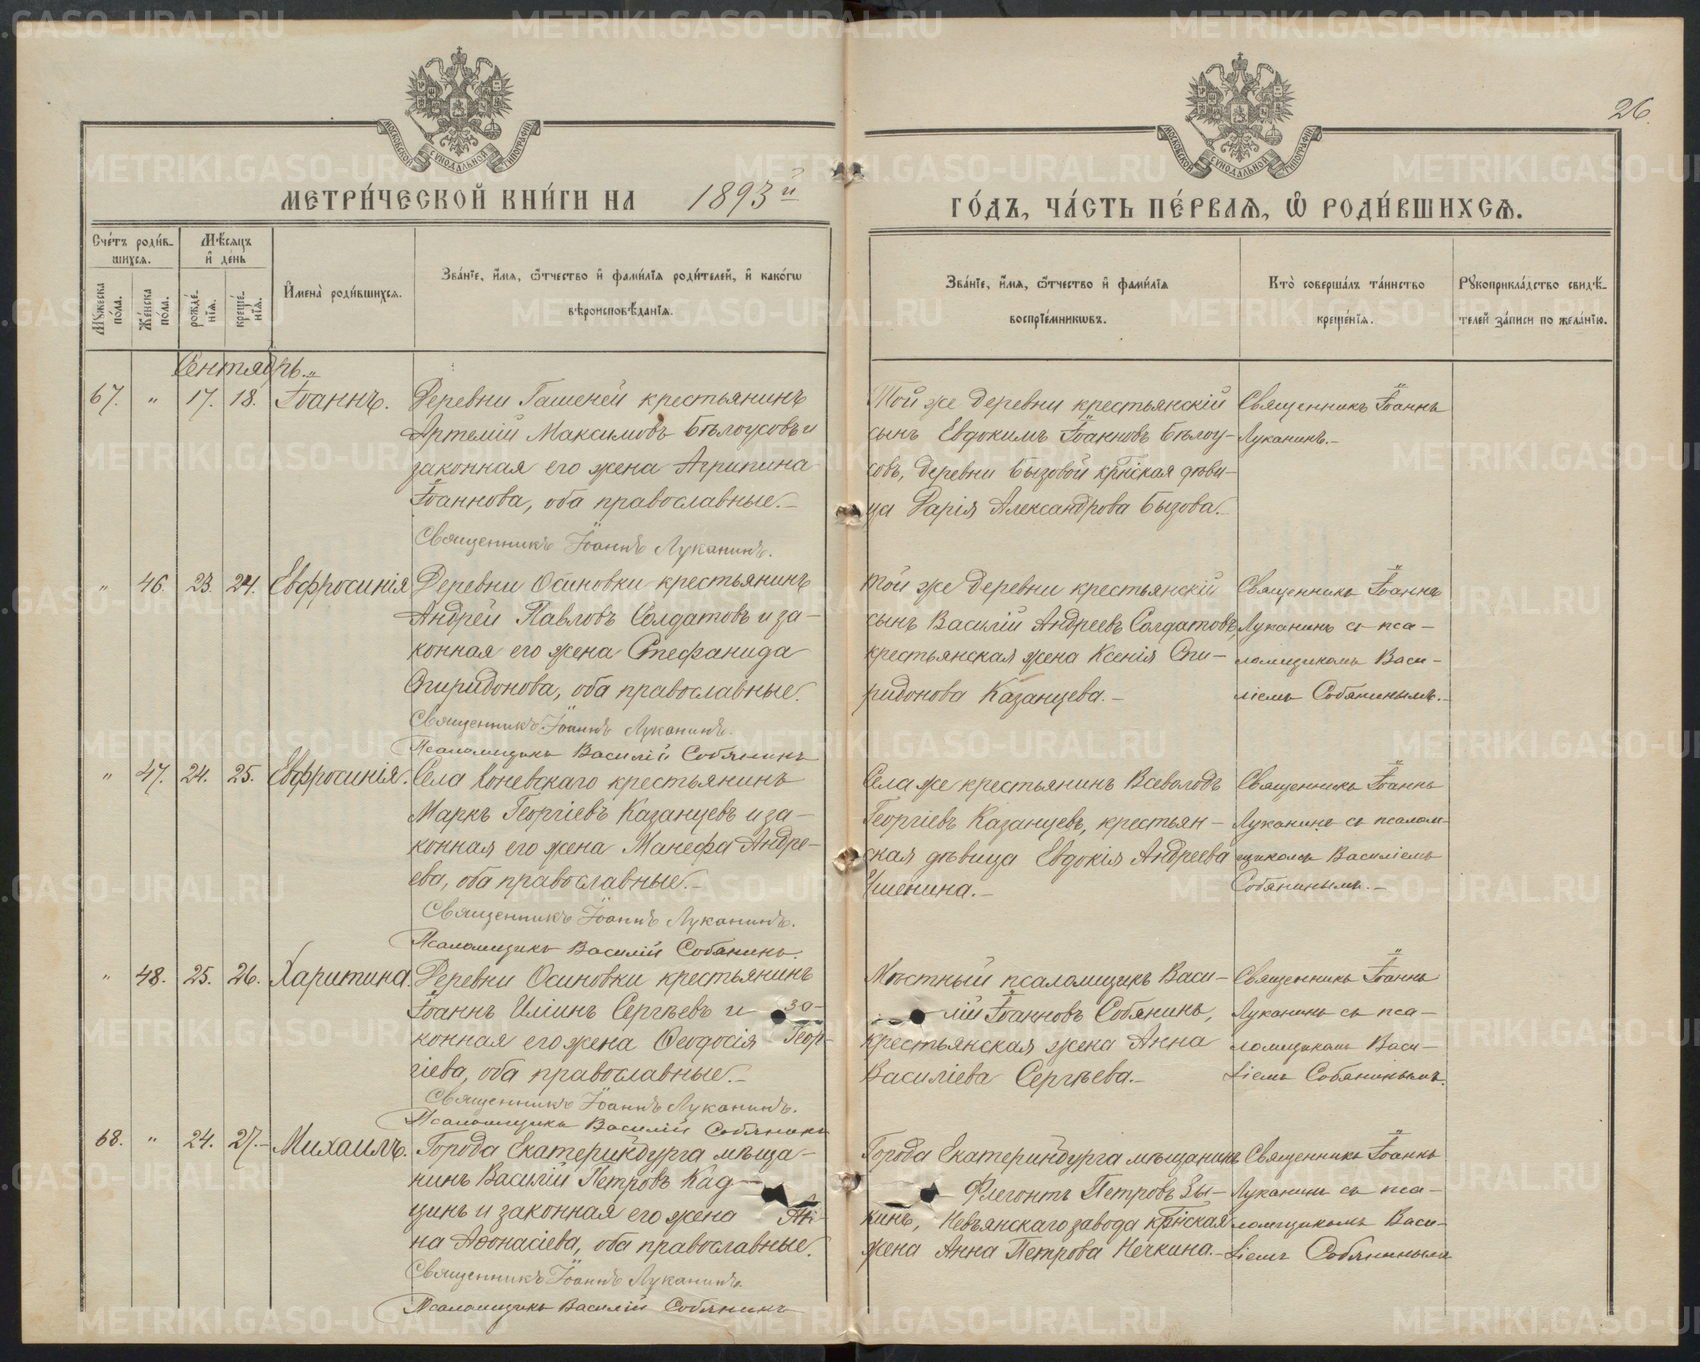 26.
МЕТРИ́ЧЕСКОЙ КНИ́ГИ НА 1893 й
ГО́ДЪ, ЧА́СТЬ ПЕ́РВАѦ, Ѡ҆ РОДИ́ВШИХСѦ.
Сче́тъ роди́в-
шихсѧ.
Мѣ́сѧцъ
и҆ день
Мꙋ́жеска по́ла.
Же́нска по́ла.
рожде́-
нїѧ.
креще́-
нїѧ.
И҆мена̀ роди́вшихсѧ.
Зва́нїе, и҆́мѧ, ѻ҆́тчество и҆ фами́лїѧ роди́телей, и҆ како́гѡ
вѣроисповѣ́данїѧ.
Зва́нїе, и҆́мѧ, ѻ҆́тчество и҆ фами́лїѧ
воспрїе́мникѡвъ.
Кто̀ соверша́лъ та́инство
креще́нїѧ.
Рꙋкоприкла́дство свидѣ́-
телей за́писи по жела́нїю.
Сентябрь.
67. " 17. 18. Іоаннъ.
Деревни Гашеней крестьянинъ
Артемій Максимовъ Бѣлоусовъ и
законная его жена Агрипина
Іоаннова, оба православные.-
Священникъ Іоаннъ Луканинъ.
Той же деревни крестьянскій
сынъ Евдокимъ Іоанновъ Бѣлоу-
совъ, деревни Бызовой крнская дѣви-
ца Дарія Александрова Бызова.-
Священникъ Іоаннъ
Луканинъ.-
" 46. 23. 24. Евфросинія
Деревни Осиновки крестьянинъ
Андрей Павловъ Солдатовъ и за-
конная его жена Стефанида
Спиридонова, оба православные.
Священникъ Іоаннъ Луканинъ.
Псаломщикъ Василій Собянинъ
той же деревни крестьянскій
сынъ Василій Андреевъ Солдатовъ,
крестьянская жена Ксенія Спи-
ридонова Казанцева.-
Священникъ Іоаннъ
Луканинъ съ пса-
ломщикомъ Васи-
ліемъ Собянинымъ.-
" 47. 24. 25. Евфросинія.
Села Коневскаго крестьянинъ
Маркъ Георгіевъ Казанцевъ и за-
конная его жена Манефа Андре-
ева, оба православные.-
Священникъ Іоаннъ Луканинъ.
Псаломщикъ Василій Собянинъ.
Села же крестьянинъ Всеволодъ
Георгіевъ Казанцевъ, крестьян-
ская дѣвица Евдокія Андреева
Ушенина.-
Священникъ Іоаннъ
Луканинъ съ псалом-
щикомъ Василіемъ
Собянинымъ.-
" 48. 25. 26. Харитина.
Деревни Осиновки крестьянинъ
Іоаннъ Иліинъ Сергѣевъ и за-
конная его жена Ѳеодосія Геор-
гіева, оба православные.-
Священникъ Іоаннъ Луканинъ.
Псаломщикъ Василій Собянинъ
Мѣстный псаломщикъ Васи-
лій Іоанновъ Собянинъ,
крестьянская жена Анна
Василіева Сергѣева.-
Священникъ Іоаннъ
Луканинъ съ пса-
ломщикомъ Васи-
ліемъ Собянинымъ.
68. " 24. 27.- Михаилъ.
Города Екатеринбурга мѣща-
нинъ Василій Петровъ Кад-
цинъ и законная его жена Ан-
на Аѳонасіева, оба православные.
Священникъ Іоаннъ Луканинъ.
Псаломщикъ Василій Собянинъ
Города Екатеринбурга мѣщанинъ
Флегонтъ Петровъ Зы-
кинъ, Невьянскаго завода крнская
жена Анна Петрова Нечкина.-
Священникъ Іоаннъ
Луканинъ съ пса-
ломщикомъ Васи-
ліемъ Собянинымъ
METRIKI.GASO-URAL.RU